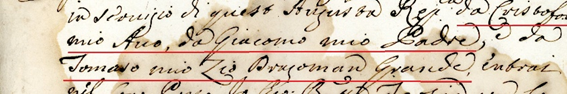 in servigio di quest' Augusta Rep.ca da Cristofo
mio Avo, da Giacomo mio Padre, e da
Tomaso mio Zio Dragoman Grande, entrai